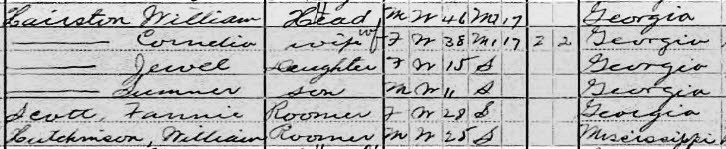 Hairston William Head M W 46 M1 17 Georgia
—— Cornelia wife wf F W 38 M1 17 2 2 Georgia
—— Jewel Daughter F W 15 S Georgia
—— Summer son M W 11 S Georgia
Scott, Fannie Roomer F W 28 S Georgia
Hutchinson, William Roomer M W 25 S Mississippi